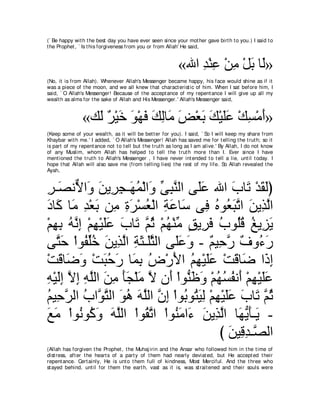 (` Be happy with the best day you have ever seen since your mother gave birth to you.) I said to
the Prophet, ` Is this forgiveness from you or from Allah' He said,
«لَا بَلْ مِنْ عِنْدِ الله»
(No, it is from Allah). Whenever Allah's Messenger became happy, his face would shine as if it
was a piece of the moon, and we all knew that characteristic of him. When I sat before him, I
said, ` O Allah's Messenger! Because of the acceptance of my repentance I will give up all my
wealth as alms for the sake of Allah and His Messenger.' Allah's Messenger said,
«أَمْسِكْ عَلَيْكَ بَعْضَ مَالِكَ فَهُوَ خَيْرٌ لَك»
(Keep some of your wealth, as it will be better for you). I said, ` So I will keep my share from
Khaybar with me.' I added, ` O Allah's Messenger! Allah has saved me for telling the truth, so it
is part of my repentance not to tell but the truth as long as I am alive.' By Allah, I do not know
of any Muslim, whom Allah has helped to tell the truth more than I. Ever since I have
mentioned the truth to Allah's Messenger , I have never intended to tell a lie, until today. I
hope that Allah will also save me (from telling lies) the rest of my life. So Allah revealed the
Ayah,
(لَقَدْ تَابَ الله عَلَى النَّبِىِّ وَالْمُهَـجِرِينَ وَالأَنصَـرِ
الَّذِينَ اتَّبَعُوهُ فِى سَاعَةِ الْعُسْرَةِ مِن بَعْدِ مَا كَادَ
يَزِيغُ قُلُوبُ فَرِيقٍ مِّنْهُمْ ثُمَّ تَابَ عَلَيْهِمْ إِنَّهُ بِهِمْ
رَءُوفٌ رَّحِيمٌ - وَعَلَى الثَّلَـثَةِ الَّذِينَ خُلِّفُواْ حَتَّى
إِذَا ضَاقَتْ عَلَيْهِمُ الأَرْضُ بِمَا رَحُبَتْ وَضَاقَتْ
عَلَيْهِمْ أَنفُسُهُمْ وَظَنُّواْ أَن لاَّ مَلْجَأَ مِنَ اللَّهِ إِلاَّ إِلَيْهِ
ثُمَّ تَابَ عَلَيْهِمْ لِيَتُوبُواْ إِنَّ اللَّهَ هُوَ التَّوَّابُ الرَّحِيمُ
- يَـأَيُّهَا الَّذِينَ ءَامَنُواْ اتَّقُواْ اللَّهَ وَكُونُواْ مَعَ
الصَّـدِقِينَ )
(Allah has forgiven the Prophet, the Muhajirin and the Ansar who followed him in the time of
distress, after the hearts of a party of them had nearly deviated, but He accepted their
repentance. Certainly, He is unto them full of kindness, Most Merciful. And the three who
stayed behind, until for them the earth, vast as it is, was straitened and their souls were